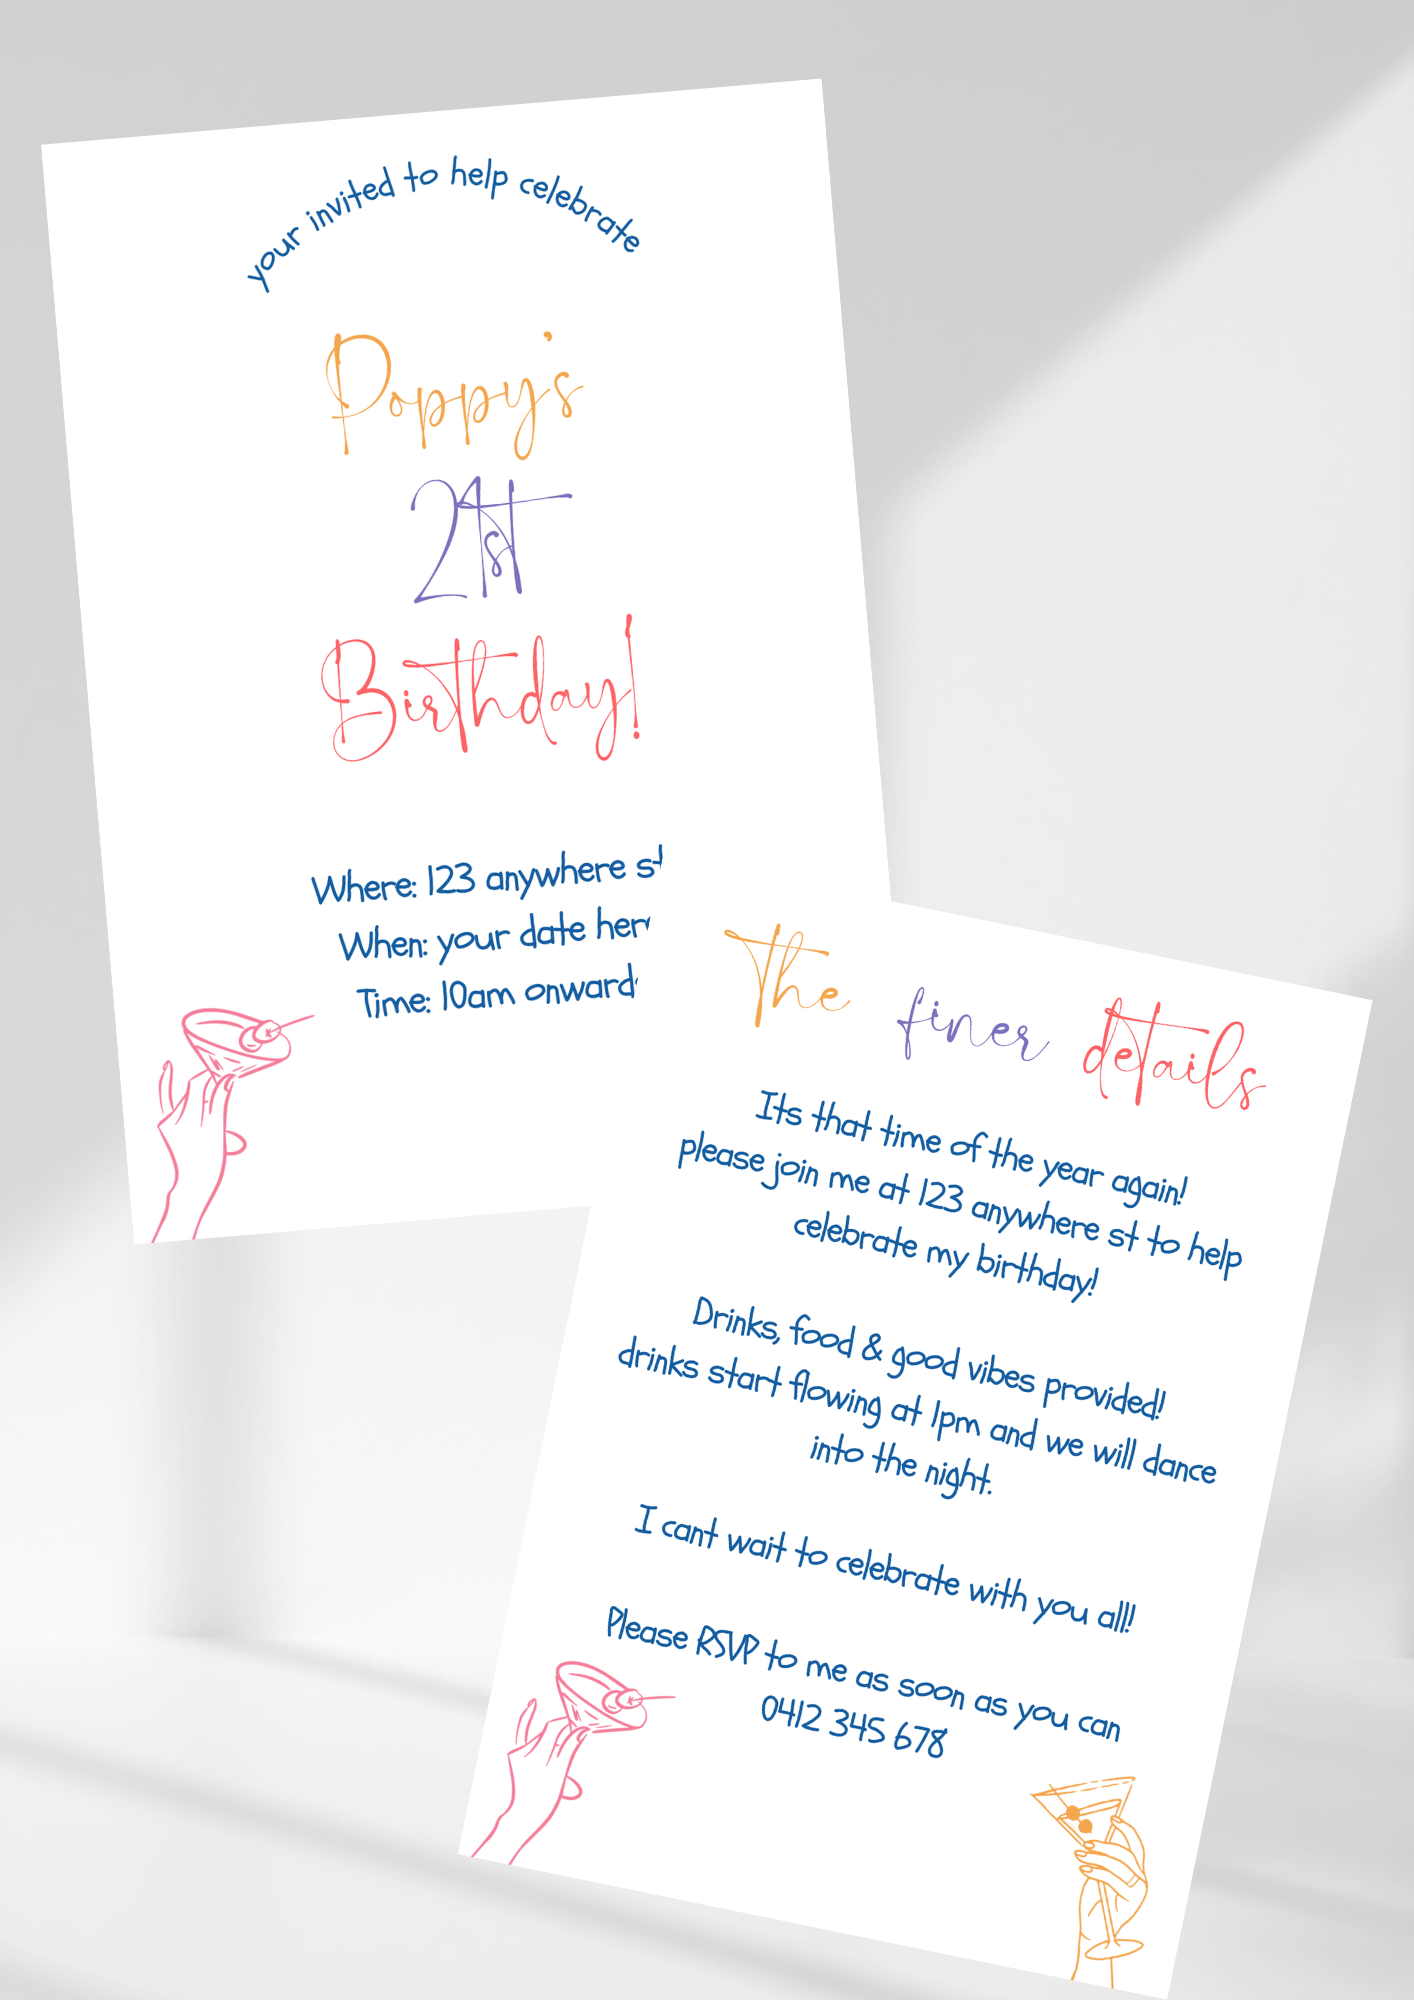 your invited to help celebrate
Poppy's
21st
Birthday!
Where: 123 anywhere st
When: your date here
Time: 10am onward
The finer details
Its that time of the year again!
please join me at 123 anywhere st to help
celebrate my birthday!
Drinks, food & good vibes provided!
drinks start flowing at 1pm and we will dance
into the night.
I cant wait to celebrate with you all!
Please RSVP to me as soon as you can
0412 345 678